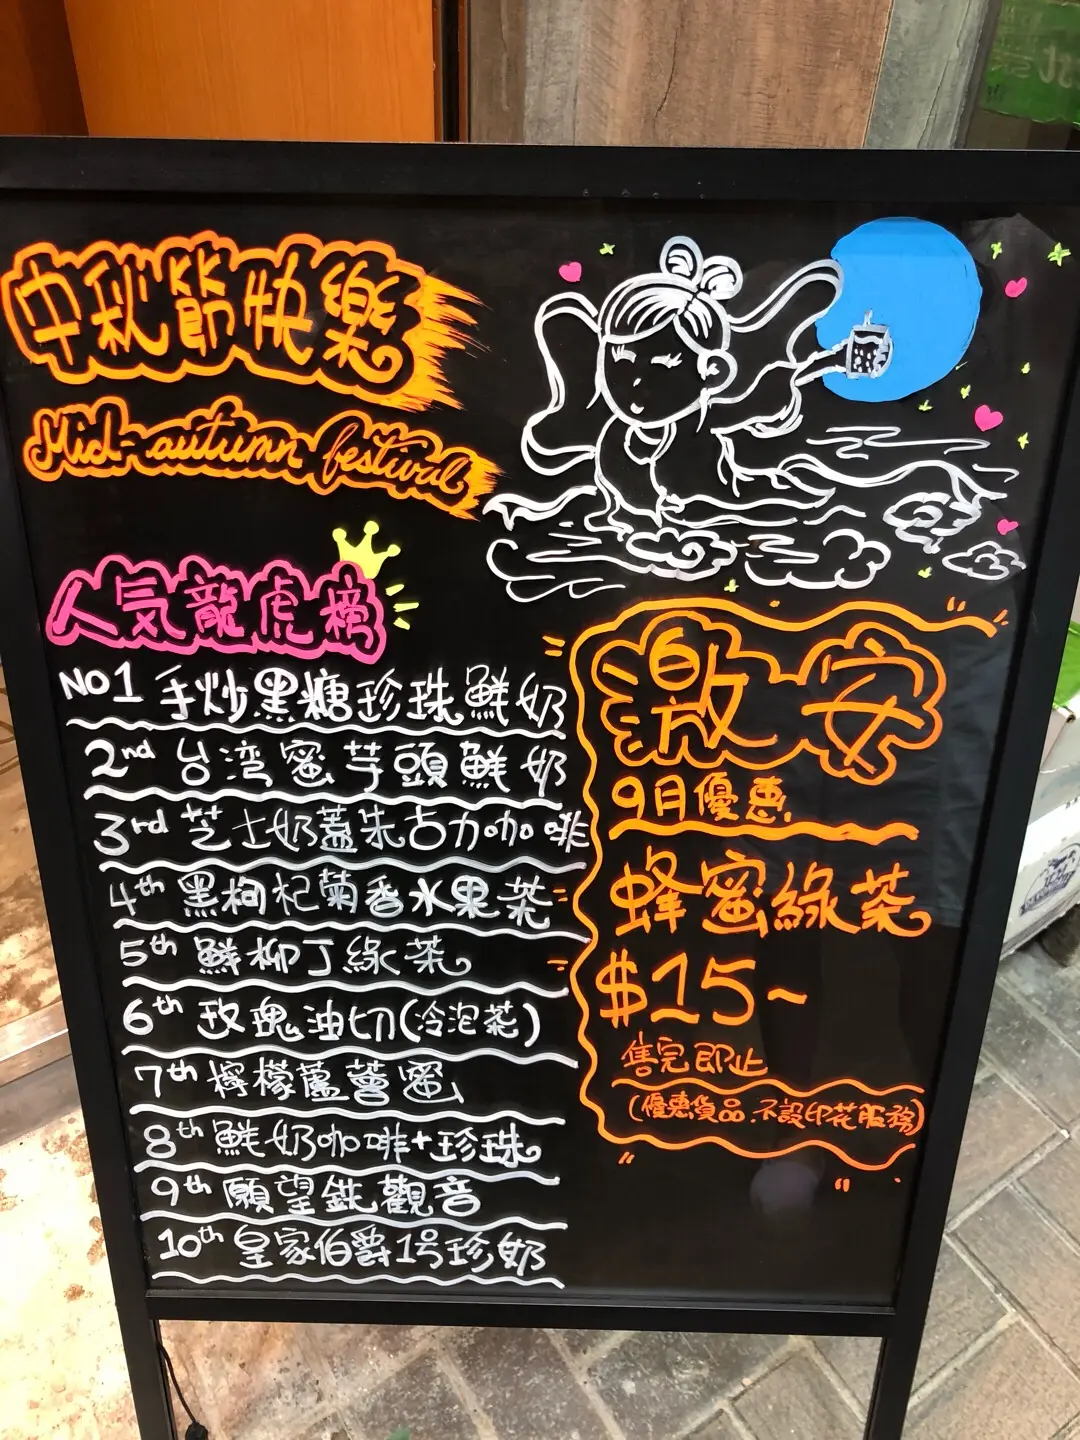 中秋節快樂
Mid-autumn festival
人気龍虎榜
NO1 手炒黑糖珍珠鮮奶
2nd 台湾蜜芋頭鮮奶
3rd 芝士奶蓋朱古力咖啡
4th 黑枸杞菊香水果茶
5th 鮮柳丁綠茶
6th 玫瑰油切(冷泡茶)
7th 檸檬蘆薈蜜
8th 鮮奶咖啡+珍珠
9th 願望鉄觀音
10th 皇家伯爵1号珍奶
激安
9月優惠
蜂蜜綠茶
$15~
售完即止
(優惠貨品.不設印花服務)